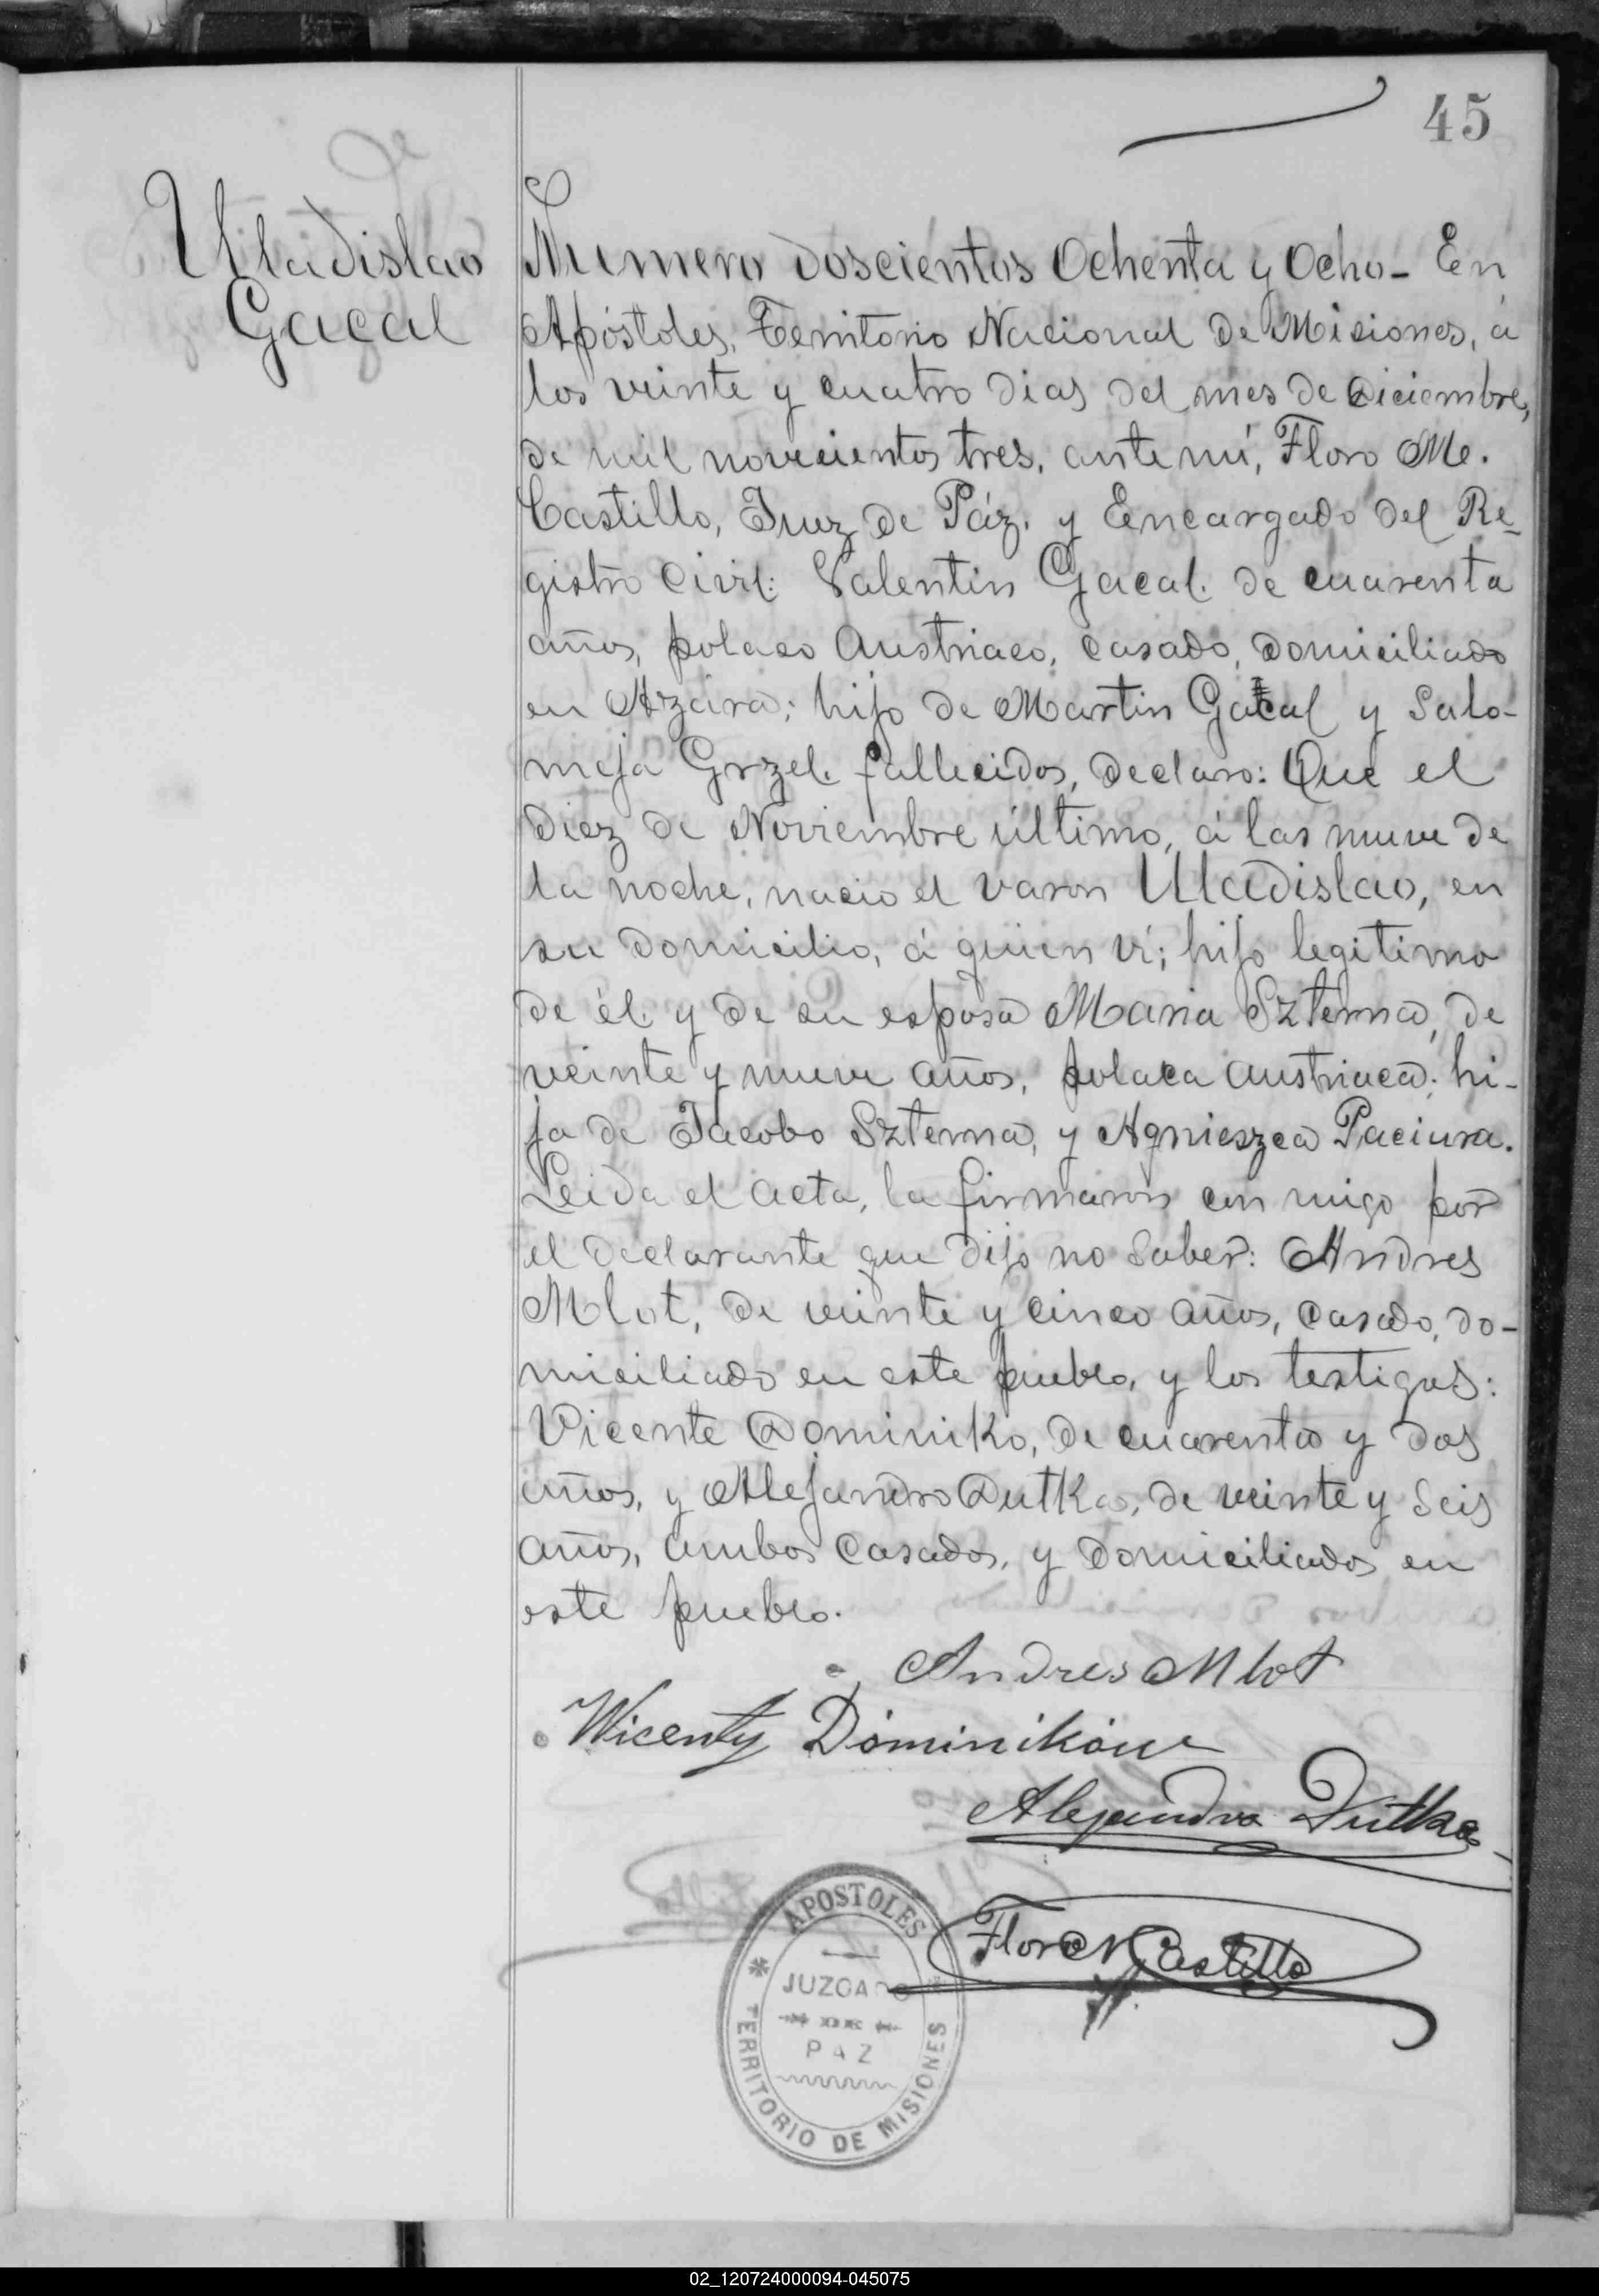 45
Uladislao
Gacal
Numero doscientos Ochenta y Ocho - En
Apóstoles, Territorio Nacional de Misiones, á
los veinte y cuatro dias del mes de Diciembre,
de mil novecientos tres, ante mi, Floro M.
Castillo, Juez de Páz. y Encargado del Re-
gistro Civil: Valentin Gacal. de cuarenta
años, polaco Austriaco, casado, domiciliado
en Azara; hijo de Martin Gacal y Salo-
meja Grzel. fallecidos, declaro: Que el
diez de Noviembre último, á las nueve de
la noche, nacio el varon Uladislao, en
su domicilio, á quien ví; hijo legitimo
de él. y de su esposa Maria Szterna, de
veinte y nueve años, polaca austriaca; hi-
ja de Jacobo Szterna, y Agnieszca Paciura.
Leida el acta, la firmaron con migo por
el declarante que dijo no saber: Andres
Mlot, de veinte y cinco años, casado, do-
miciliado en este pueblo, y los testigos:
Vicente Dominiko, de cuarenta y dos
años, y Alejandro Dutka, de veinte y seis
años, ambos casados, y domiciliados en
este pueblo.
Andres Mlot
Wicenty Dominików
Alejandro Dutka
Floro M Castillo
APOSTOLES
JUZGADO
DE
PAZ
TERRITORIO DE MISIONES
02_120724000094-045075